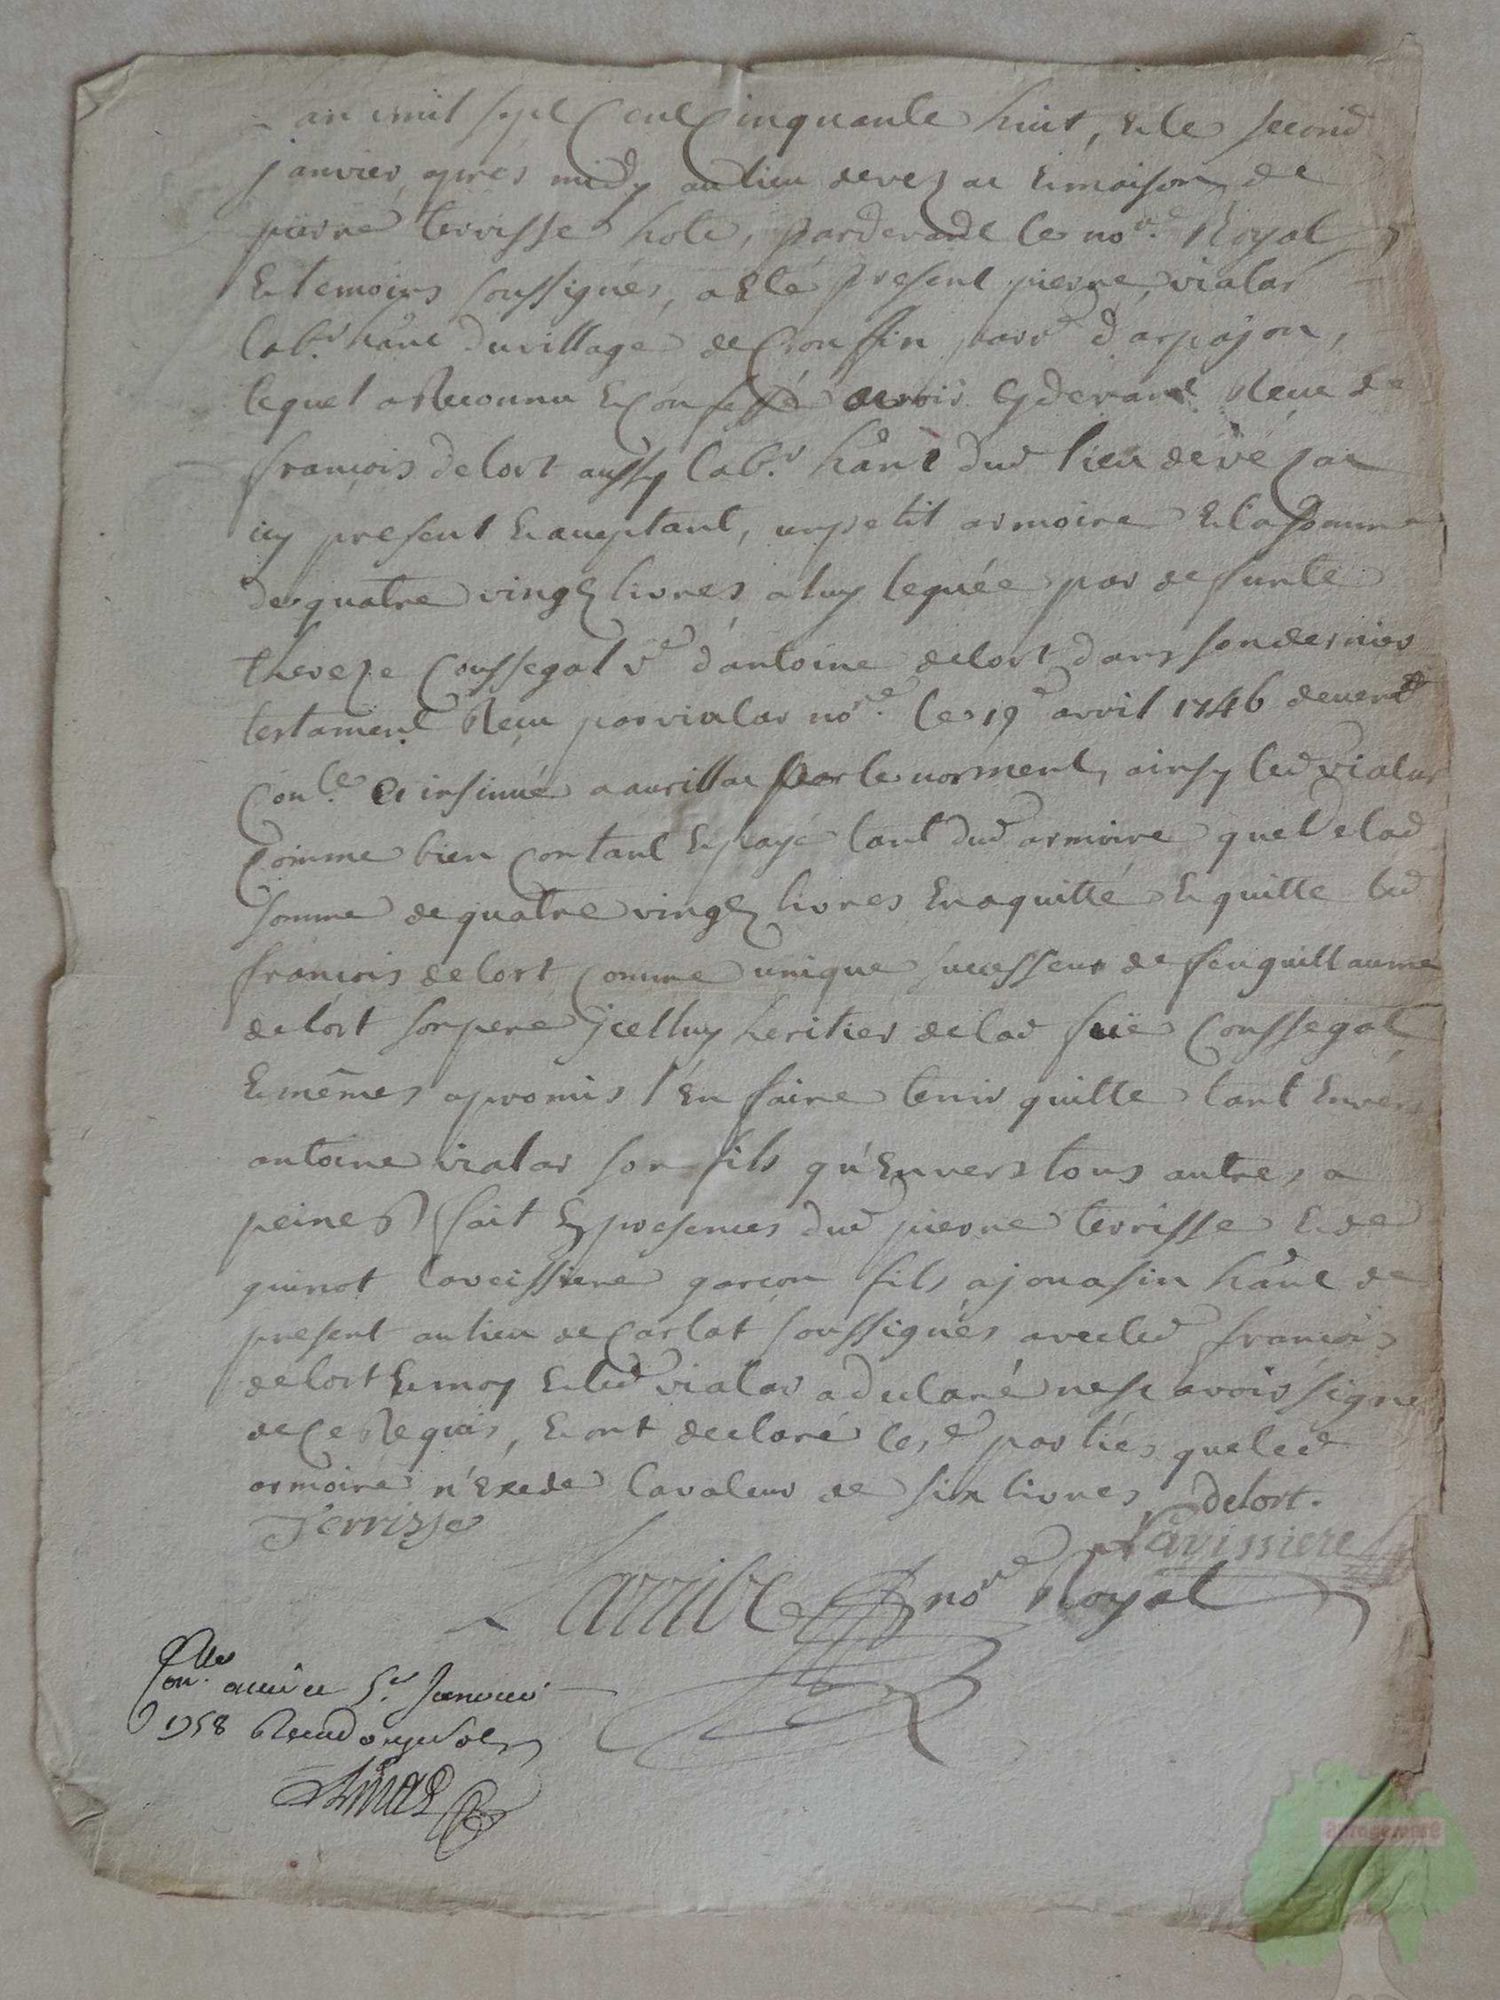 an mil sept Cent Cinquante huit, & le second
janvier, apres midy au lieu de vezac & maison de
pierre terrisse hote, pardevant le no.re Royal
& temoins soussignés, a eté present pierre vialar
lab.r hânt du village de Conffin parr.e d'arpajon,
lequel a Reconnu & Confessé avoir cy devant Receu de
françois delort aussy lab.r hânt dud lieu de vézac
icy present & aceptant, un petit armoire & la somme
de quatre vingt livres a luy leguée par defunte
thereze Coussegal v.e d'antoine delort dans son dernier
testament Receu par vialar no.re le 19.e avril 1746 deuem.t
Con.lé et insinué a aurillac par le normant, ainsy led vialar
Comme bien Contant & payé tant dud armoire que de lad
somme de quatre vingt livres En a quitté & quitte led
françois delort Comme unique successeur de feu guillaume
delort son pere Jcelluy heritier de lad feüe Coussegal
& mêmes a promis l'En faire tenir quitte tant Envers
antoine vialar son fils qu'Envers tous autres a
peine & fait En presences dud pierre terrisse & de
guinot laveissiere garçon fils a jonasin hânt de
present au lieu de Carlat soussignés avec led françois
delort & moy & led vialar a declaré ne sç avoir signer
de Ce Requis, & ont declaré les.d parties que led
armoire n'Exede la valeur de six livres delort.
Terrisse
Lavissiere
Larribe no.re Royal
Con.llé a
le 5.e Janvier
1758 Receu douze sols